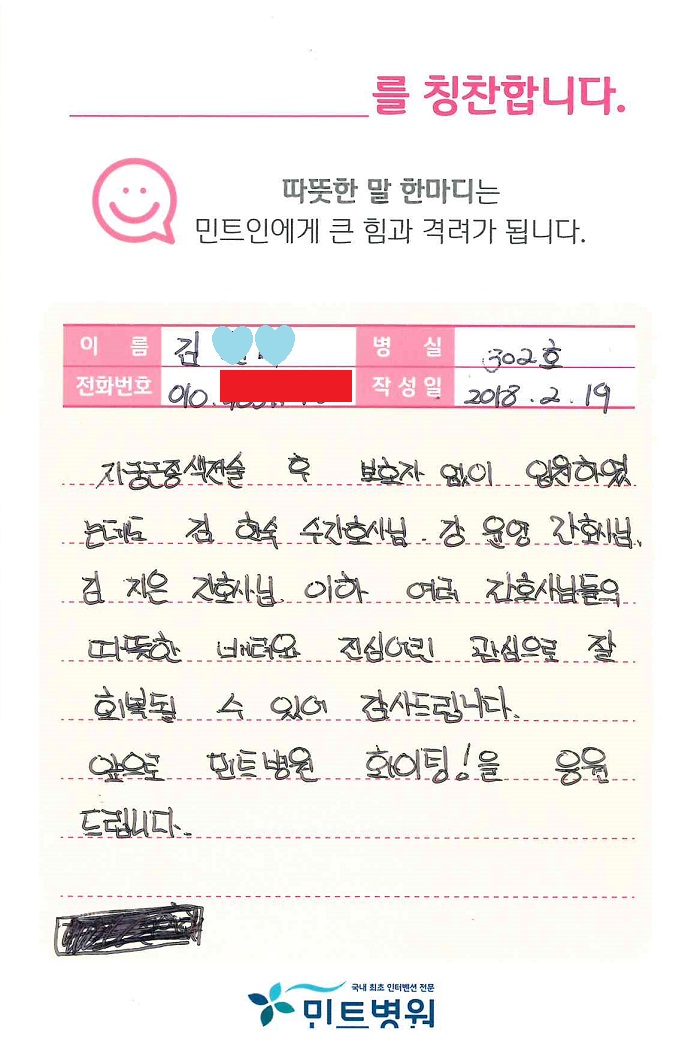 를 칭찬합니다.
따뜻한 말 한마디는
민트인에게 큰 힘과 격려가 됩니다.
이 름 김 병 실 302호
전화번호 010. 작성일 2018.2.19
자궁근종색전술 후 보호자 없이 입원하였
는데도 김 현숙 수간호사님. 강 윤영 간호사님.
김 지은 간호사님 이하 여러 간호사님들의
따뜻한 배려와 진심어린 관심으로 잘
회복될 수 있어 감사드립니다.
앞으로 민트병원 화이팅!을 응원
드립니다.
국내 최초 인터벤션 전문
민트병원